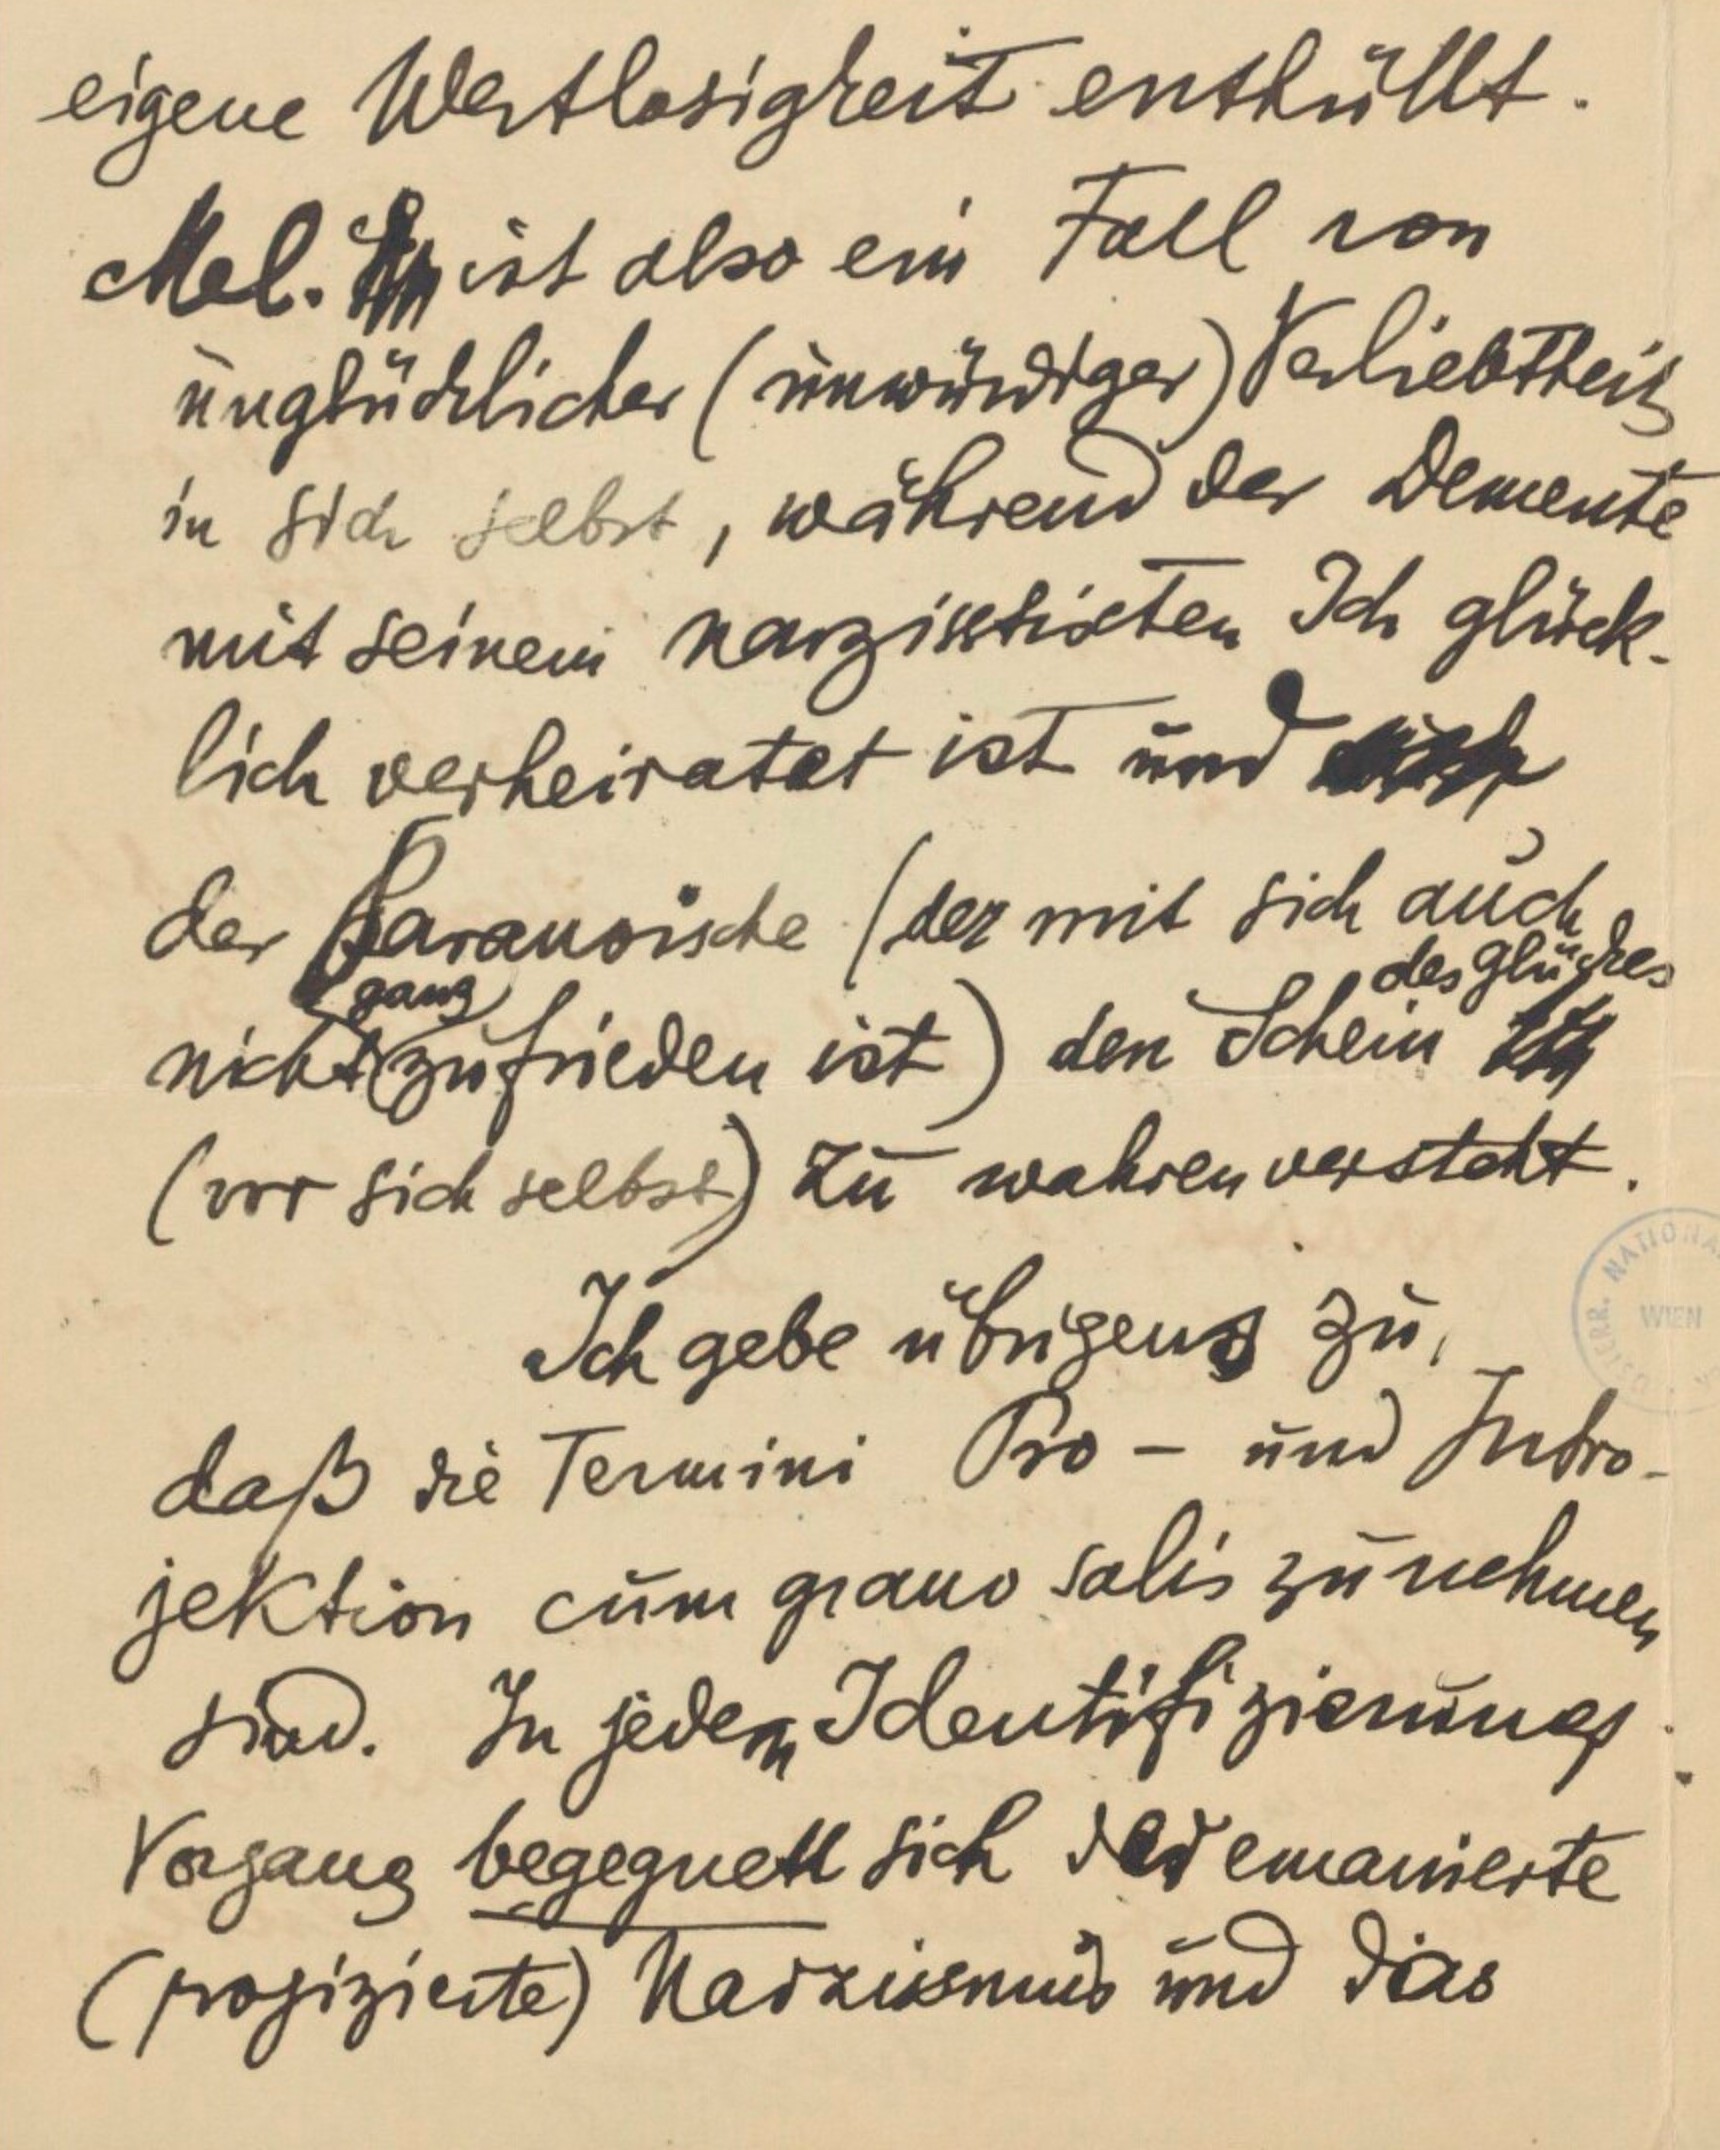 eigene Wertlosigkeit enthüllt.
Mel. ist also ein Fall von
unglücklicher (unwürdiger) Verliebtheit
in sich selbst, während der Demente
mit seinem narzisstischen Ich glück-
lich verheiratet ist und
der Paranoische (der mit sich auch
nicht ganz zufrieden ist) den Schein des Glückes
(vor sich selbst) zu wahren versteht.
Ich gebe übrigens zu,
daß die Termini Pro- und Intro-
jektion cum grano salis zu nehmen
sind. In jedem Identifizierungs-
Vorgang begegnen sich der emanierte
(projizierte) Narzismus und das
ÖSTERR. NATIONAL
WIEN